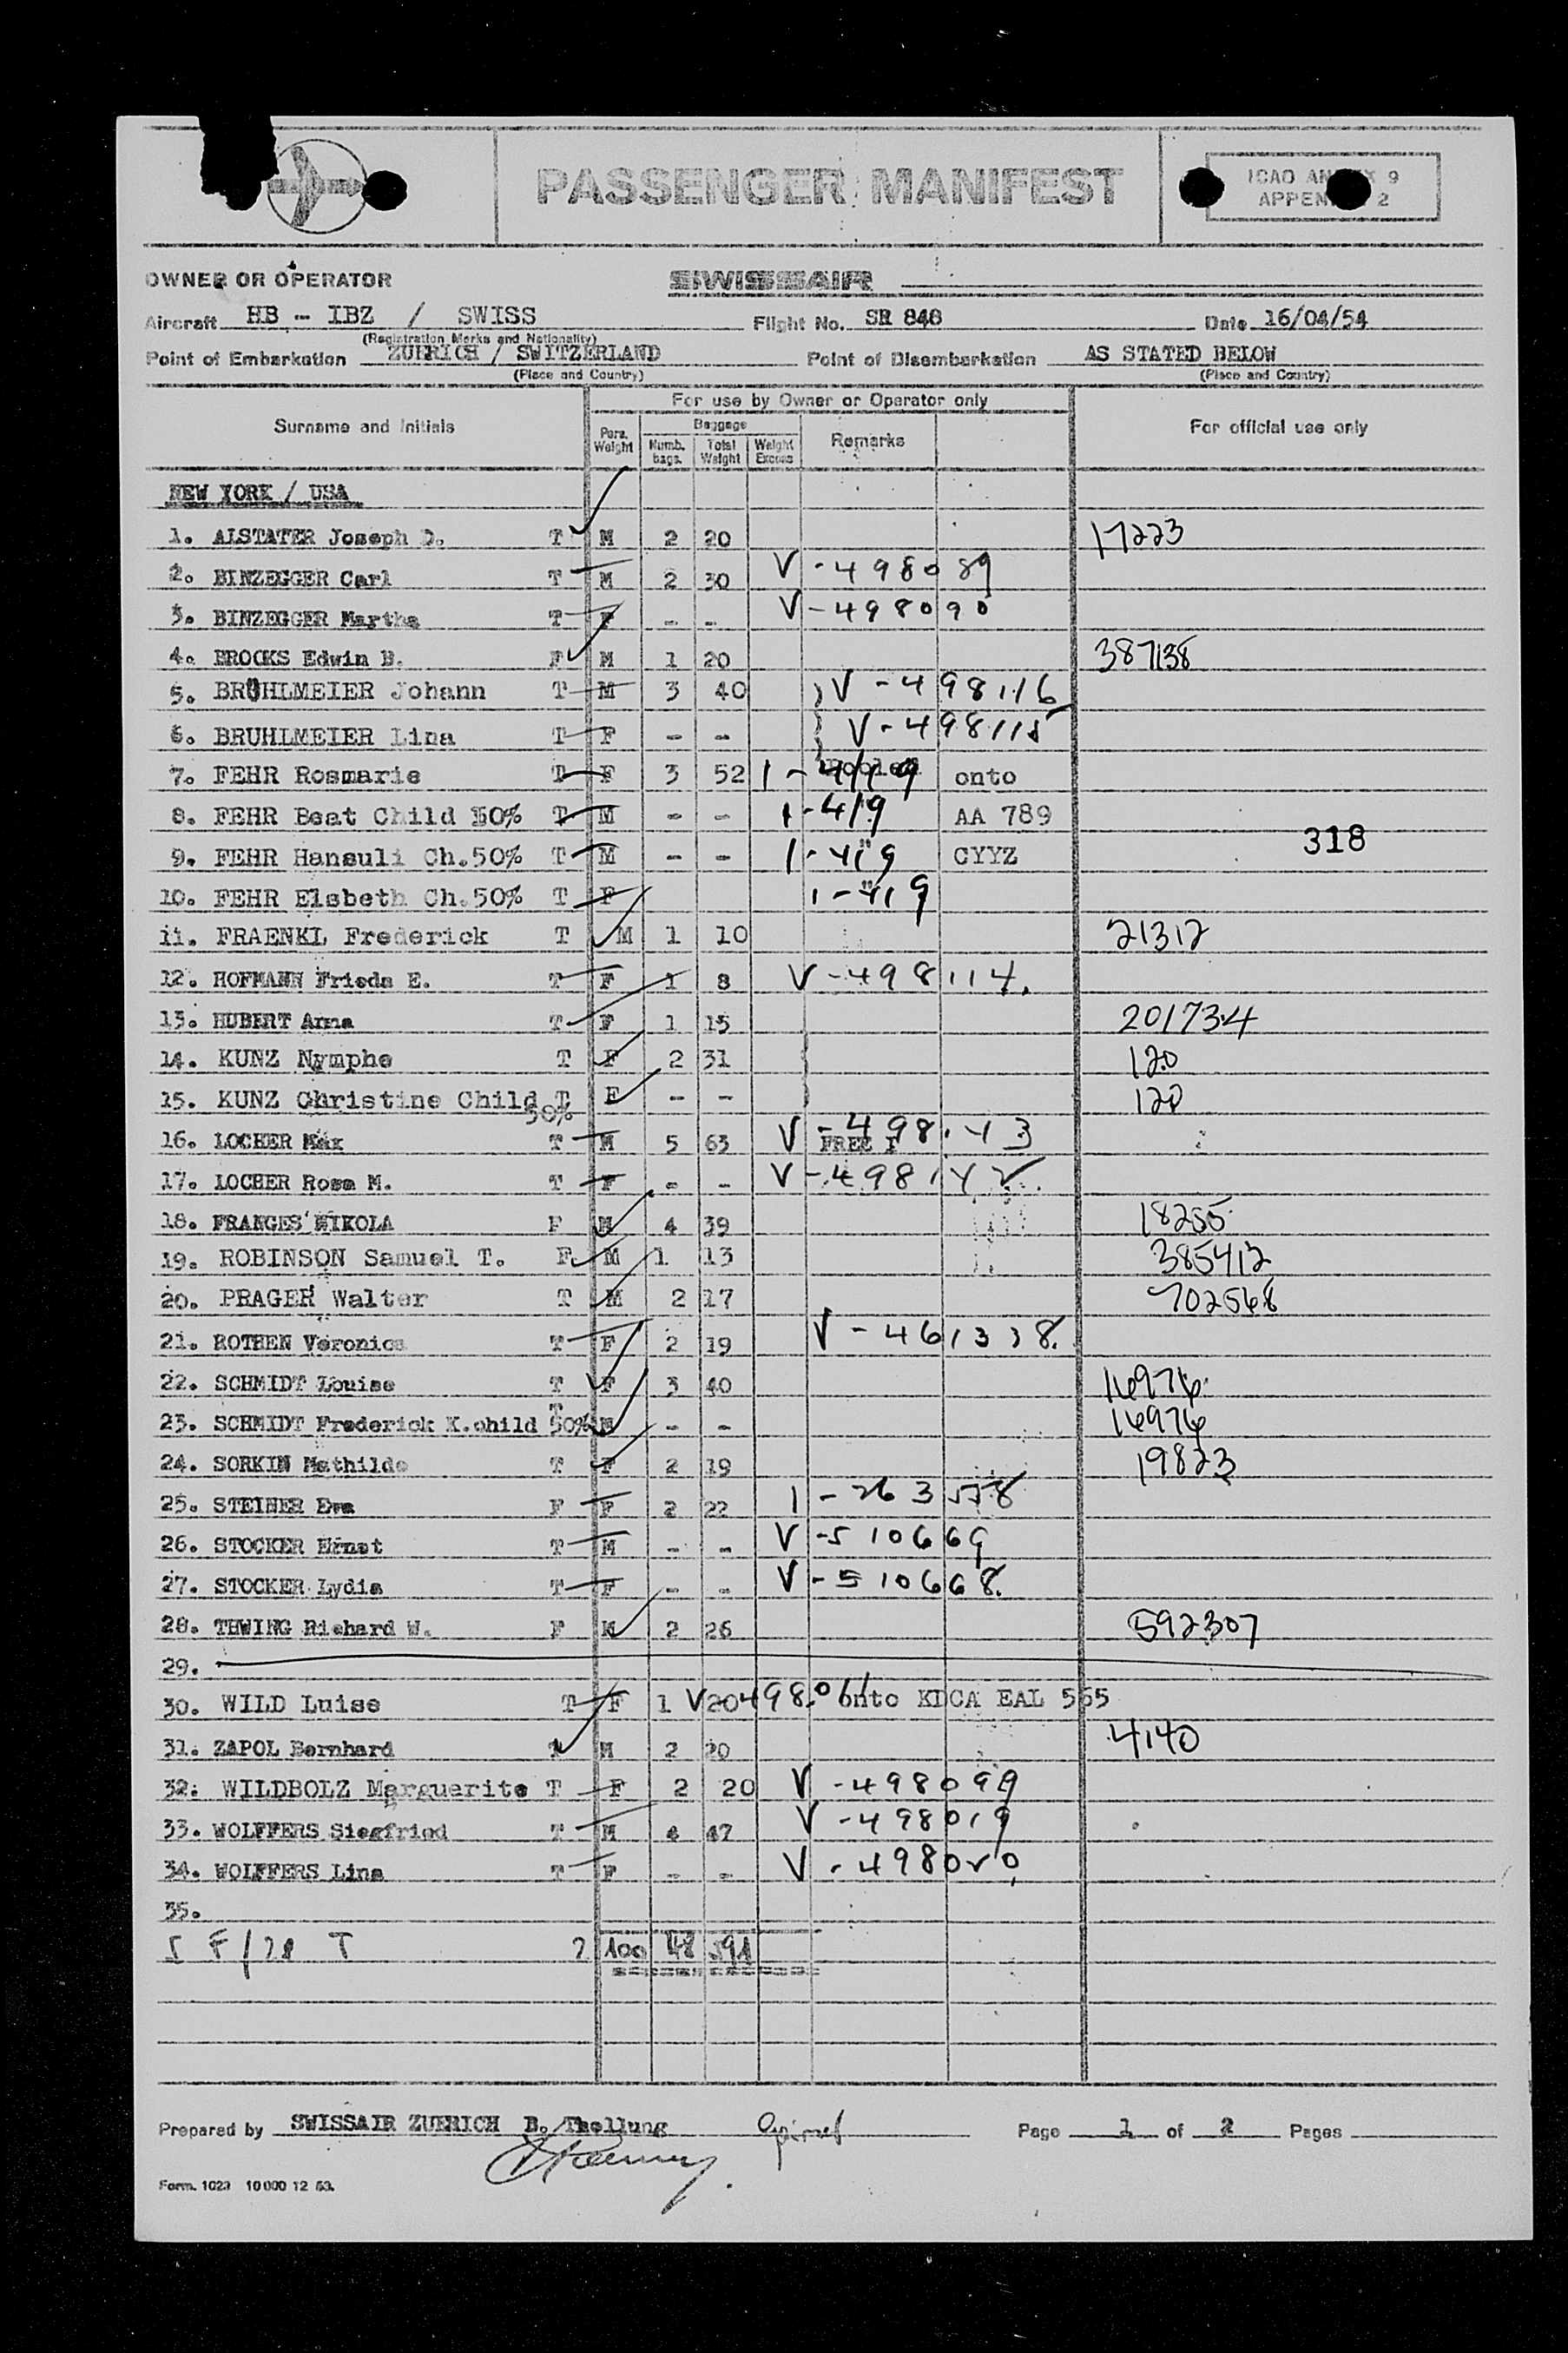 PASSENGER MANIFEST
ICAO ANNEX 9
APPENDIX 2
OWNER OR OPERATOR SWISSAIR
Aircraft HB - IBZ / SWISS Flight No. SR 848 Date 16/04/54
(Registration Marks and Nationality)
Point of Embarkation ZUERICH / SWITZERLAND Point of Disembarkation AS STATED BELOW
(Place and Country) (Place and Country)
For use by Owner or Operator only
Surname and Initials Pers. Weight Baggage Numb. bags. Total Weight Weight Excess Remarks For official use only
NEW YORK / USA
1. ALSTATER Joseph D. T M 2 20 17223
2. BINZEGGER Carl T M 2 30 V-498089
3. BINZEGGER Martha T F - - V-498090
4. BROCKS Edwin B. F M 1 20 387138
5. BRUHLMEIER Johann T M 3 40 V-498116
6. BRUHLMEIER Lina T F - - V-498115
7. FEHR Rosmarie T F 3 52 1-419 onto
8. FEHR Beat Child 50% T M - - 1-419 AA 789
9. FEHR Hansuli Ch.50% T M - - 1-419 CYYZ 318
10. FEHR Elsbeth Ch.50% T F 1-419
11. FRAENKL Frederick T M 1 10 21312
12. HOFMANN Frieda E. T F 1 8 V-498114.
13. HUBERT Anna T F 1 15 201734
14. KUNZ Nymphe T F 2 31 120
15. KUNZ Christine Child T F - - 120
50%
16. LOCHER Max T M 5 63 V-498143 FREE F
17. LOCHER Rosa M. T F - - V-498142
18. FRANGES NIKOLA F M 4 39 18255
19. ROBINSON Samuel T. F M 1 13 385412
20. PRAGER Walter T M 2 17 702568
21. ROTHEN Veronica T F 2 19 V-461338.
22. SCHMIDT Louise T F 3 40 16976
23. SCHMIDT Frederick K.child 50% T M - - 16976
24. SORKIN Mathilde T F 2 19 19823
25. STEINER Eva F F 2 22 1-263558
26. STOCKER Ernst T M - - V-510669
27. STOCKER Lydia T F - - V-510668.
28. THWING Richard W. F M 2 26 592307
29.
30. WILD Luise T F 1 20 V 498061 onto KDCA EAL 565
31. ZAPOL Bernhard T M 2 20 4140
32. WILDBOLZ Marguerite T F 2 20 V-498099
33. WOLFFERS Siegfried T M 4 47 V-498019
34. WOLFFERS Lina T F - - V-498020
35.
5 F/28 T 2 100 48 591
Prepared by SWISSAIR ZUERICH B. Thellung Page 1 of 2 Pages
Form. 1023 10000 12 53.